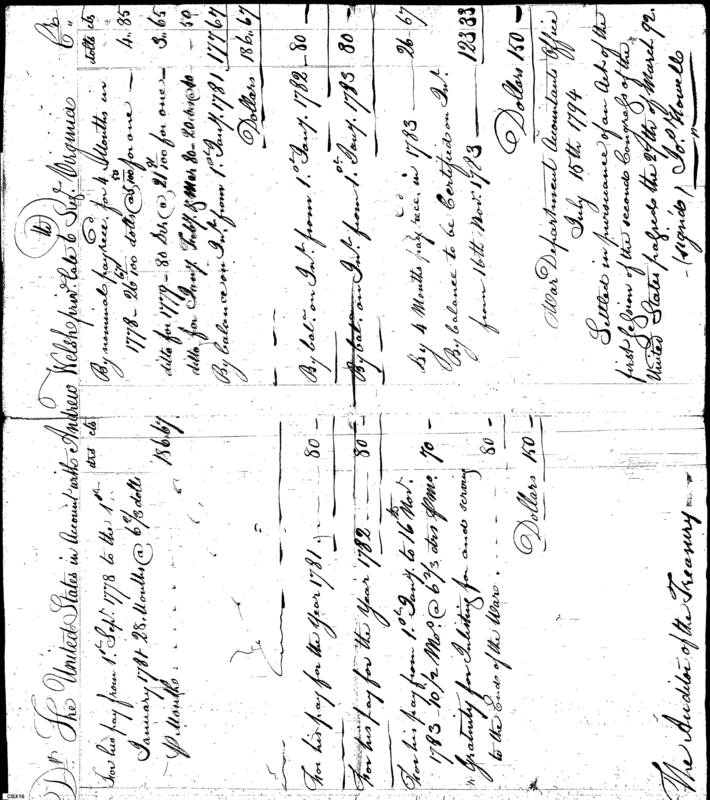 Dr. The United States in Account with Andrew Welsh priv. late 6th Regt. Virginia Cr.
dols cts
For his pay from 1st Sept. 1778 to the 1st
January 1781 28 Months @ 6 2/3 dolls
℔ Month 186.67
For his pay for the Year 1781 80 -
For his pay for the Year 1782 80 -
For his pay from 1st Jany. to 16th Nov.
1783 - 10 1/2 Mos. @ 6 2/3 dls ℔ Mo. 70 -
Gratuity for Inlisting for and serving
to the End of the War 80 -
Dollars 150 -
The Auditor of the Treasury
dolls cts
By nominal pay rec'd. for 4 Months in
1778 - 26 67/100 dolls @ for one - 4.. 85
ditto for 1779 - 80 dls @ 21 /100 for one - 3..65
ditto for Jany. Feby. & Mar 80 - 20 dls @ 40 - 50
By balance on Int. from 1st Jany. 1781 177 67
Dollars 186.. 67
By bal. on Int. from 1st Jany. 1782 - 80 -
By bal. on Int. from 1st Jany. 1783 80 -
By 4 Months pay rec. in 1783 26 - 67
By balance to be Certified on Int.
from 16th Nov. 1783 123 33
Dollars 150 -
War Department Accountants Office
July 15th 1794
Settled in pursuance of an Act of the
first session of the second Congress of the
United States passed the 27th of March 92.
(signed) Jo. Howell
CBX16